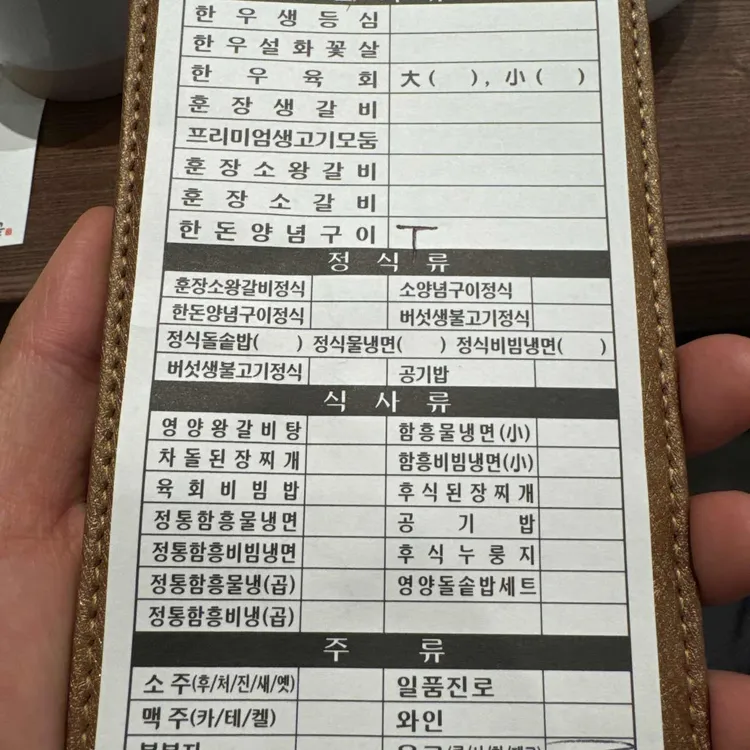 한우생등심
한우설화꽃살
한우육회 大( ), 小( )
훈장생갈비
프리미엄생고기모둠
훈장소왕갈비
훈장소갈비
한돈양념구이 ㅜ
정식류
훈장소왕갈비정식 소양념구이정식
한돈양념구이정식 버섯생불고기정식
정식돌솥밥( ) 정식물냉면( ) 정식비빔냉면( )
버섯생불고기정식 공기밥
식사류
영양왕갈비탕 함흥물냉면(小)
차돌된장찌개 함흥비빔냉면(小)
육회비빔밥 후식된장찌개
정통함흥물냉면 공기밥
정통함흥비빔냉면 후식누룽지
정통함흥물냉(곱) 영양돌솥밥세트
정통함흥비냉(곱)
주류
소주(후/처/진/새/옛) 일품진로
맥주(카/테/켈) 와인